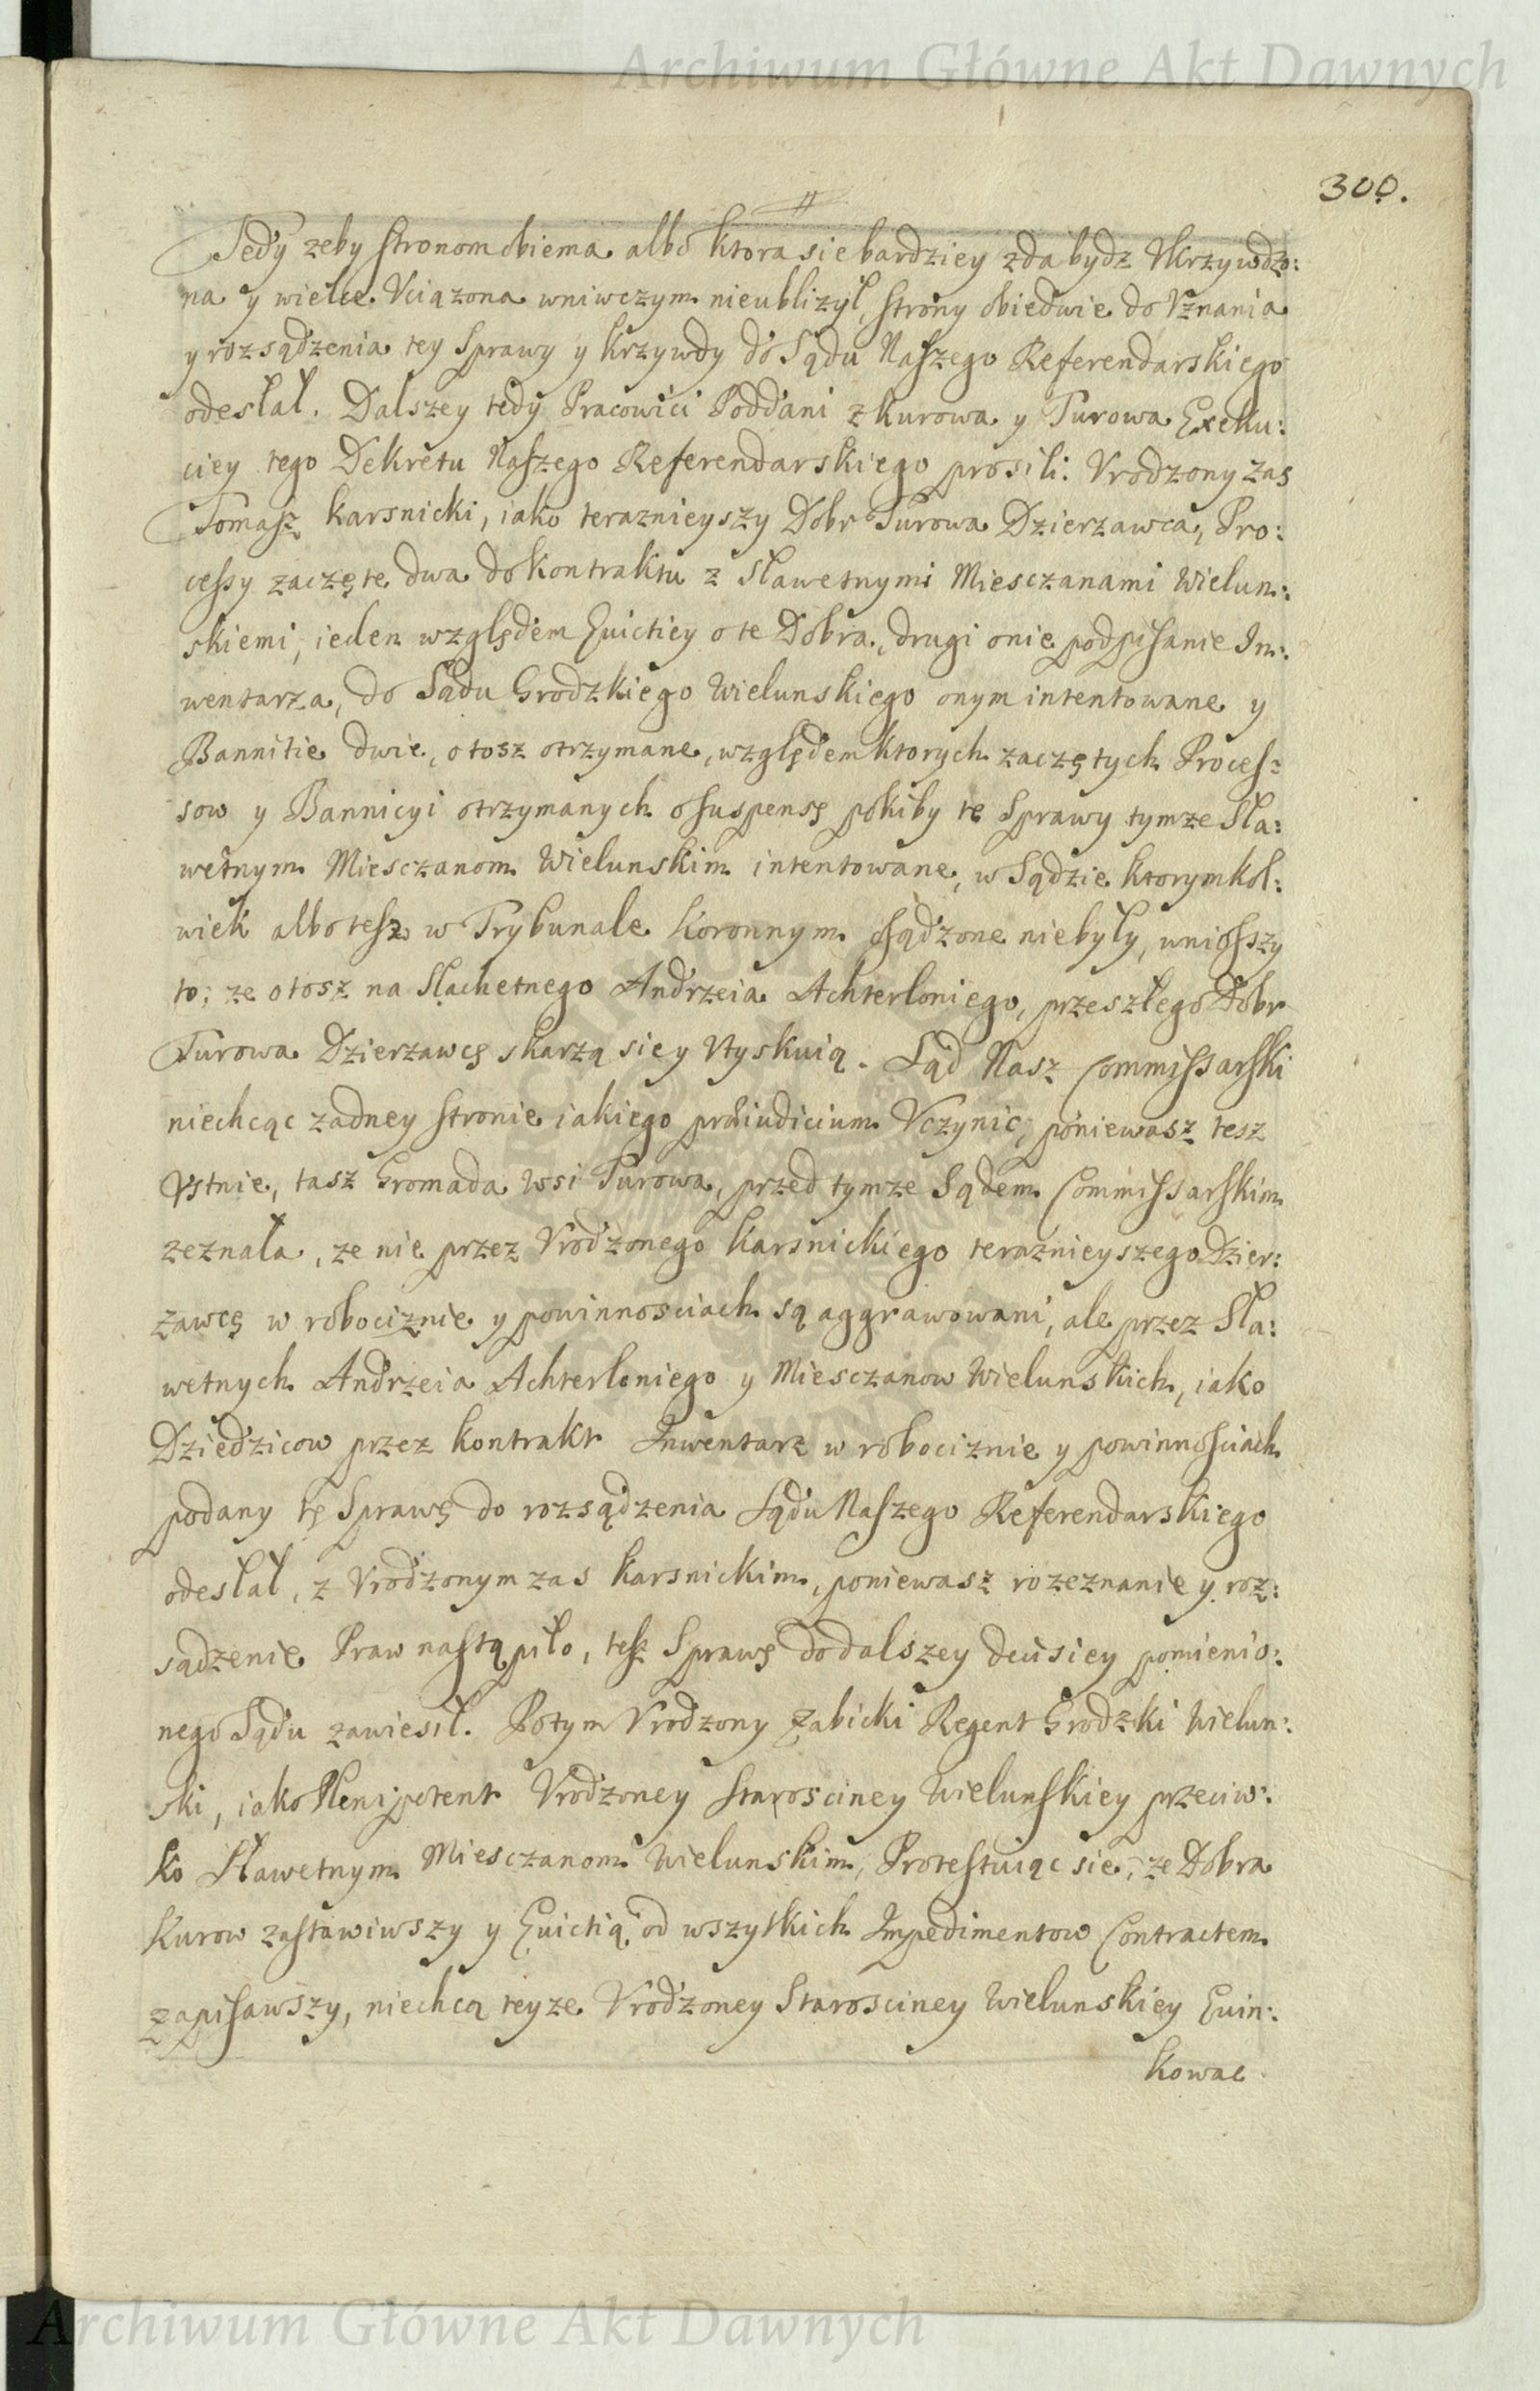 Archiwum Główne Akt Dawnych
300.
Tedy zeby stronom obiema albo ktora sie bardziey zda bydz Ukrzywdzo:
na y wielce Vciązona wniwczym nieublizył, strony obiedwie do Vznania
y rozsądzenia tey Sprawy y krzywdy do Sądu Naszego Referendarskiego
odesłał. Dalszey tedy Pracowici Poddani z Kurowa y Turowa Exeku:
ciey tego Dekretu Naszego Referendarskiego prosili. Vrodzony zas
Tomasz Karsnicki, iako teraznieyszy Dobr Turowa Dzierzawca, Pro:
cessy zaczęte dwa do kontraktu z Sławetnymi Miesczanami Wielun:
skiemi, ieden względem Euictiey o te Dobra, drugi onie podpisanie In:
wentarza, do Sądu Grodzkiego Wielunskiego onym intentowane y
Bannitie dwie, o tosz otrzymane, względem ktorych zaczętych Proces:
sow y Bannicyi otrzymanych o suspensę pokiby te Sprawy tymze Sła:
wetnym Miesczanom Wielunskim intentowane, w Sądzie ktorymkol:
wiek albo tesz w Trybunale Koronnym osądzone niebyły, uniosszy
to; ze o tosz na Slachetnego Andrzeia Achterloniego, przeszłego Dobr
Turowa Dzierzawcę skarzą sie y Vtyskuią. Sąd Nasz Commissarski
niechcąc zadney stronie iakiego præiudicium Vczynic, poniewasz tesz
Vstnie, tasz Gromada Wsi Turowa, przed tymze Sądem Commissarskim
zeznała, ze nie przez Vrodzonego Karsnickiego teraznieyszego Dzier:
zawcę w robociznie y powinnosciach są aggrawowani, ale przez Sła:
wetnych Andrzeia Achterloniego y Miesczanow Wielunskich, iako
Dziedzicow przez kontrakt Inwentarz w robociznie y powinnosciach
podany tę Sprawę do rozsądzenia Sądu Naszego Referendarskiego
odesłał, z Vrodzonym zas Karsnickim, poniewasz rozeznanie y roz:
sądzenie Praw nastąpiło, tesz Sprawę do dalszey decisiey pomienio:
nego Sądu zawiesił. Potym Vrodzony Zabicki Regent Grodzki Wielun:
ski, iako Plenipotent Vrodzoney Starosciney Wielunskiey przeciw:
ko Sławetnym Miesczanom Wielunskim, Protestuiąc sie, ze Dobra
Kurow zastawiwszy y Euictią od wszytkich Impedimentow Contractem
zapisawszy, niechcą teyze Vrodzoney Starosciney Wielunskiey Euin:
kowac
Archiwum Główne Akt Dawnych